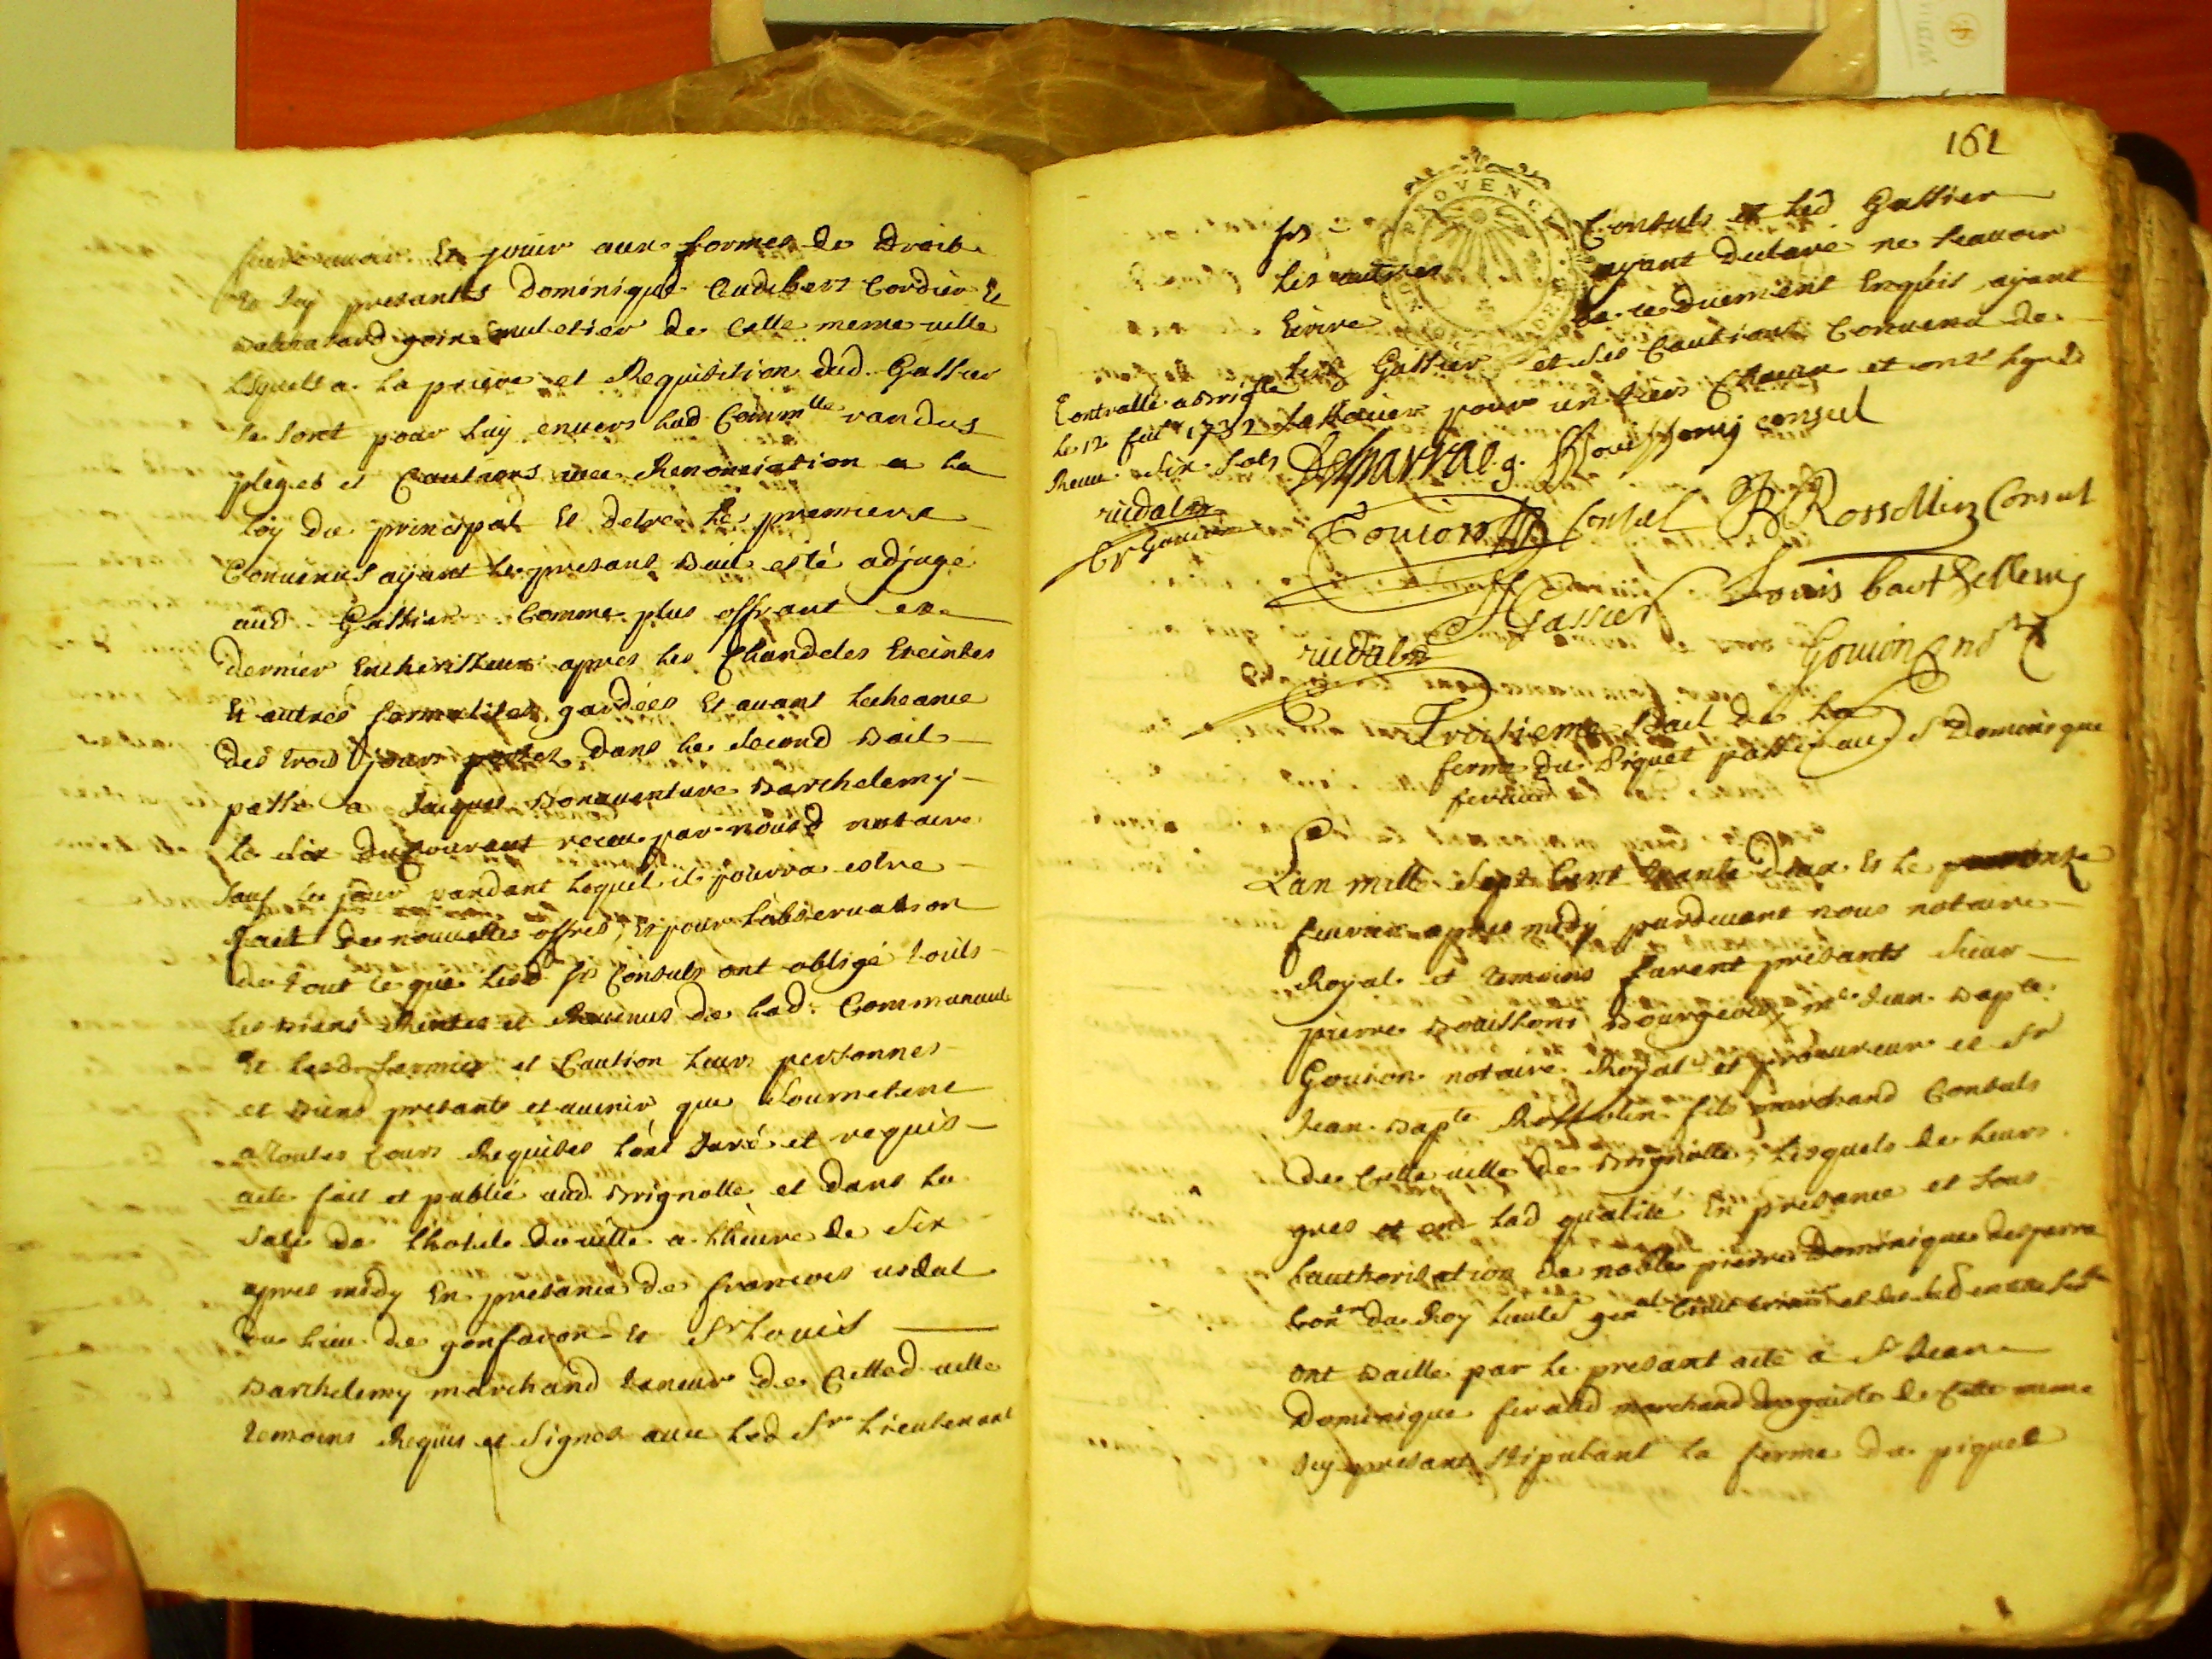 faire avoir Et jouir aux formes de Droit
Et Icy presants Dominique Audibert Cordier Et
goin muletier de Cette meme ville
lesquels a la priere et Requisition dud. Gassier
se sont pour luy envers lad Comm^tte randus
pleges et Cautions avec Renonciation a la
loy du principal Et detre le premiere
Convenus ayant le presant Bail esté adjugé
aud. Gassier Comme plus offrant et
dernier Encherisseur apres les Chandeles Eteintes
Et autres formalites gardées Et avant lecheance
des trois jours portes dans le second Bail
passé a Jacques Bonaventure Barthelemy
le six du Courant receu par nousd notaire
sauf les jours pandant lequel il pourra estre
fait de nouvelles offres, Et pour lobservation
de tout ce que lesd Srs Consuls ont obligé touts
les Biens Rentes et Revenus de lad. Communauté
Et lesd fermier et Caution leurs personnes
et Biens presants et avenir que soumetent
a toutes Cours Requises lont Juré et requis
acte fait et publié aud Brignolle et dans la
sale de lhotel de ville a lheure de six
apres midy En presance de francois rudal
du lieu de gonfaron Et Sr Louis
Barthelemy marchand taneur de Cetted ville
temoins Requis et signés avec led Sr Lieutenant
161
PROVENCE
Srs Consuls et led Gassier
les autres ayant declaré ne scavoir
Ecrire de ce duement Enquis, ayant
led Gassier et ses Cautions Convenu de
lassocier pour un tiers Chacun et ont signé
Controllé a Brignolle
le 12 feb 1732
Receu six sols
rudal
Gouion
Desparra l.g. Bouissony consul
Gouion Consul JB Rossollin Consul
Gassier Louis barthellemy
rudal Gouion not^re
Troisieme Bail de la
ferme du Piquet passé au Sr Dominique
feraud
Lan mille sept Cent trante deux Et le onze
fevrier apres midy pardevant nous notaire
Royal et temoins furent présants sieur
pierre Bouissoni Bourgeois, m^e Jean Bap^te
Gouion notaire Royal et procureur et Sr
Jean Bap^te Rossolin fils marchand Consuls
de Cette ville de Brignolle, lesquels de leurs
gres et en lad qualité En presance et sous
lauthorisation de noble pierre Dominique desparra
Con^er du Roy Lieut^t gen^al Civil Crim^el et
ont Baillé par le presant acte a Sr Jean
Dominique feraud marchand droguiste de Cette meme
Icy presant stipulant la ferme du piquet